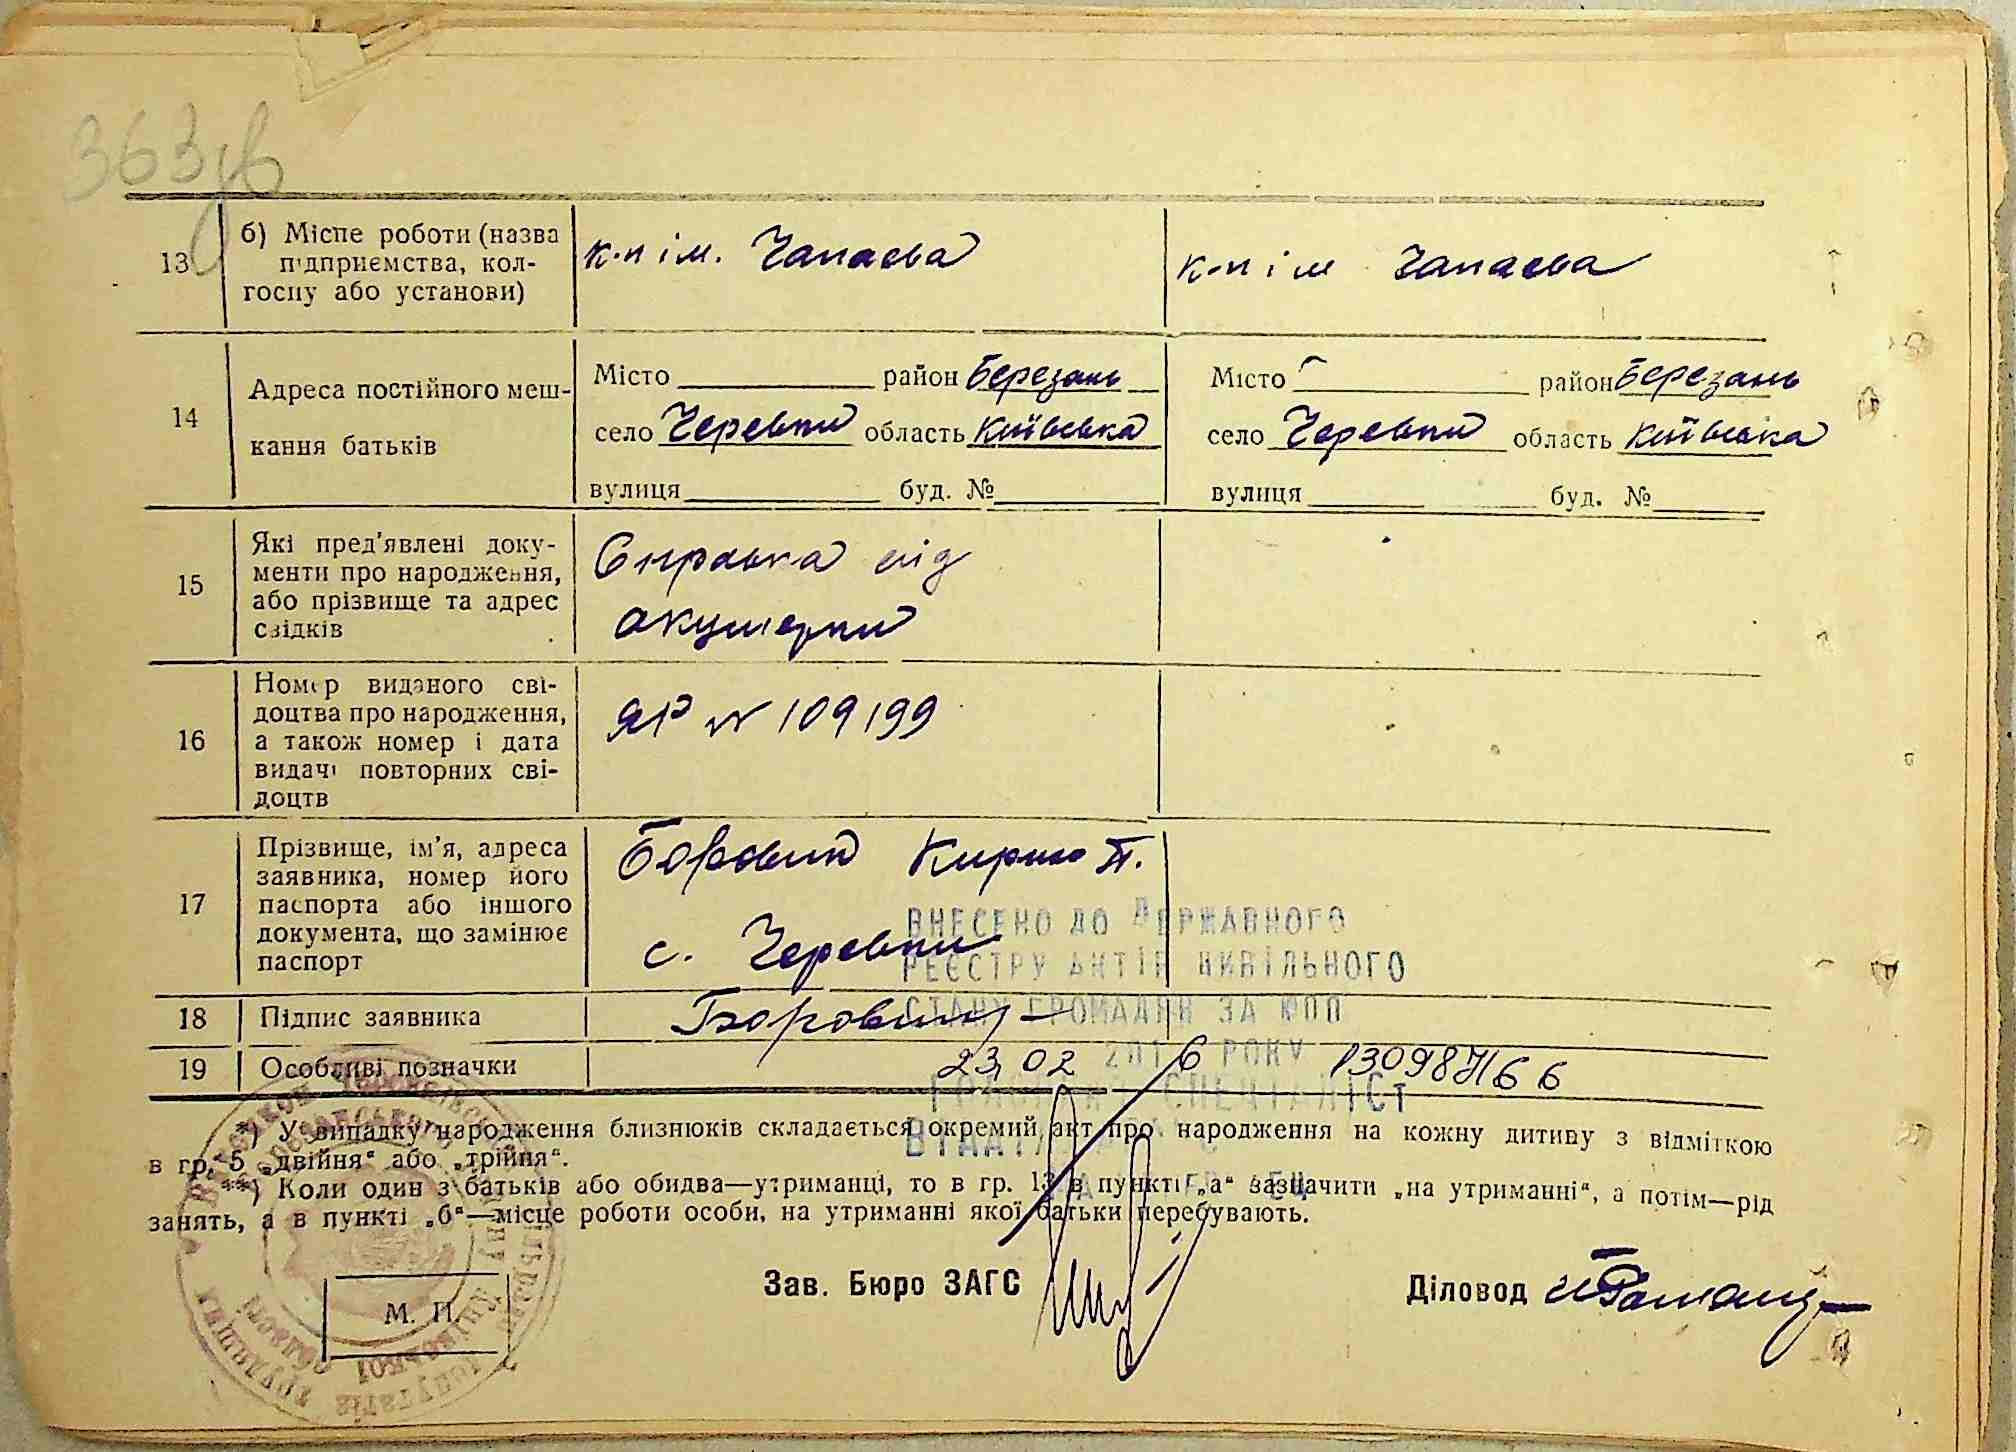 363 зв
13 б) Місце роботи (назва підприємства, колгоспу або установи)
к-п ім. Чапаєва
к-п ім Чапаєва
14 Адреса постійного мешкання батьків
Місто район Березань
село Черевки область Київська
вулиця буд. №
Місто район Березань
село Черевки область Київська
вулиця буд. №
15 Які пред'явлені документи про народження, або прізвище та адрес свідків
Справка від
акушерки
16 Номер виданого свідоцтва про народження, а також номер і дата видачі повторних свідоцтв
ЯР № 109199
17 Прізвище, ім'я, адреса заявника, номер його паспорта або іншого документа, що замінює паспорт
Боровик Кирило П.
с. Черевки
ВНЕСЕНО ДО ДЕРЖАВНОГО
РЕЄСТРУ АКТІВ ЦИВІЛЬНОГО
СТАНУ ГРОМАДЯН ЗА
18 Підпис заявника
Боровик
19 Особливі позначки
23 02 2016 РОКУ
ГОЛОВНИЙ СПЕЦІАЛІСТ
*) У випадку народження близнюків складається окремий акт про народження на кожну дитину з відміткою
в гр. 5 „двійня“ або „трійня“.
**) Коли один з батьків або обидва—утриманці, то в гр. 13 в пункті „а“ зазначити „на утриманні“, а потім—рід
занять, а в пункті „б“—місце роботи особи, на утриманні якої батьки перебувають.
Зав. Бюро ЗАГС
Діловод
М. П.